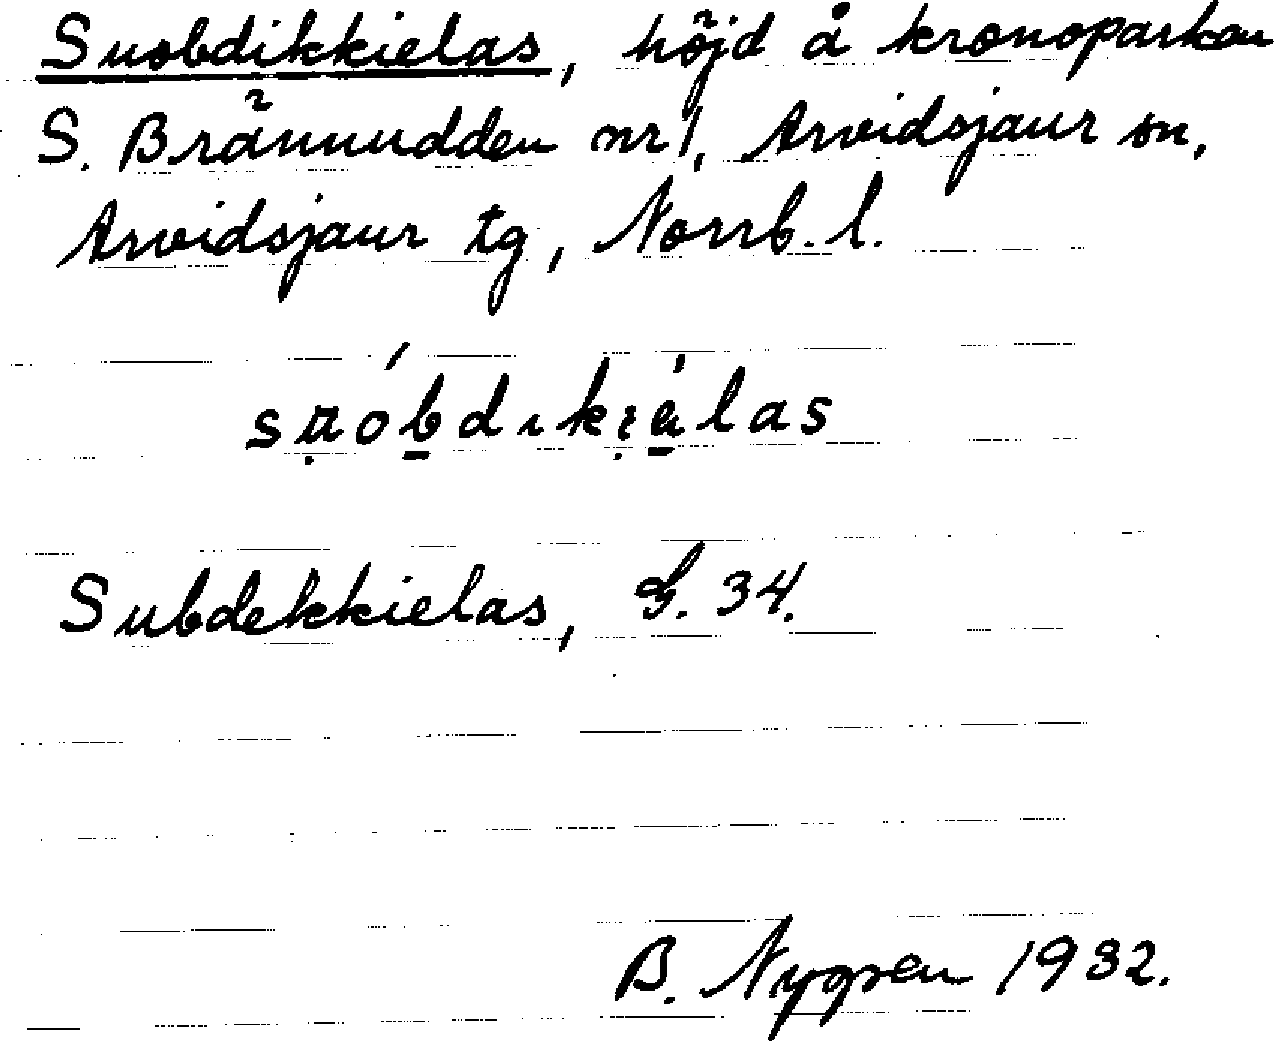 Suobdikkielas, höjd å kronoparken
S. Brännudden nr 1, Arvidsjaur sn,
Arvidsjaur tg, Norrb. l.
Subdekkielas, G. 34.
B. Nygren 1932.